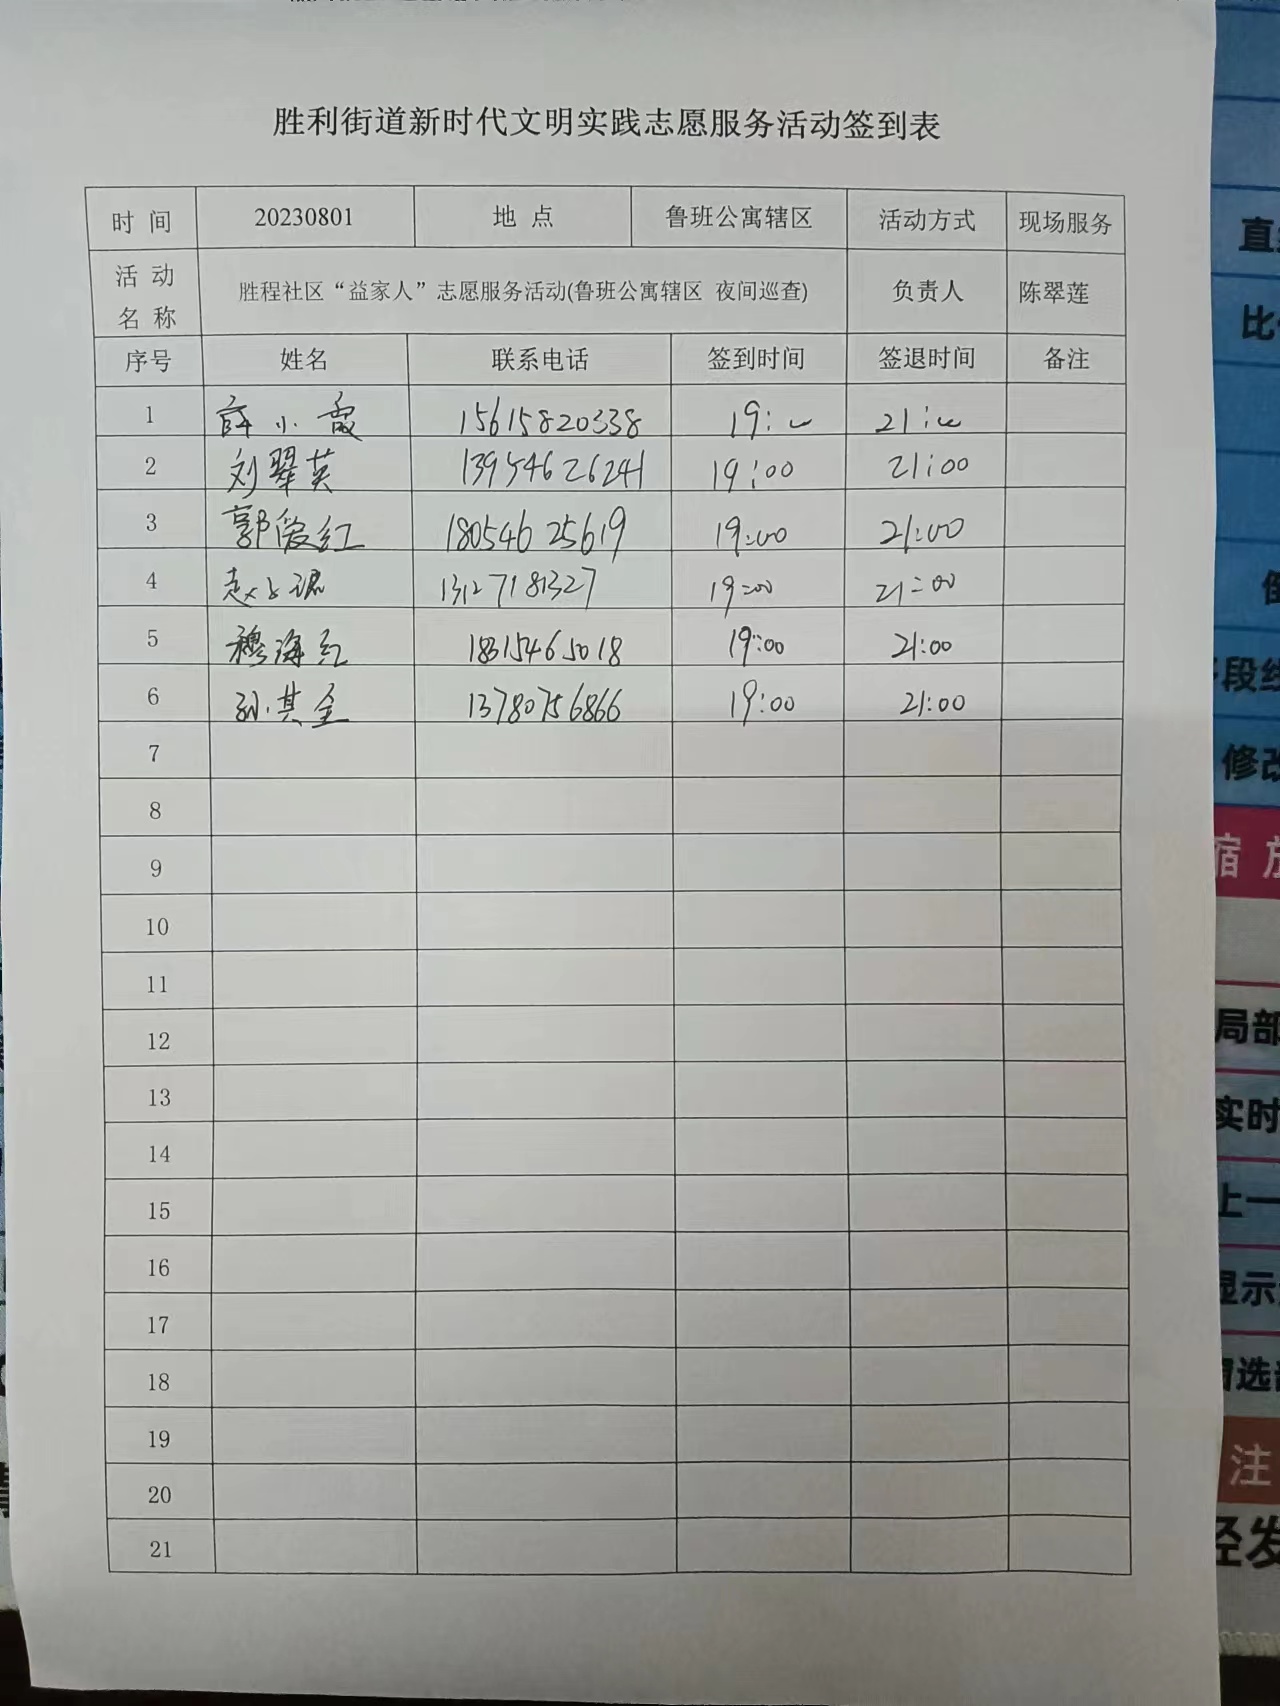 胜利街道新时代文明实践志愿服务活动签到表
时 间 20230801 地 点 鲁班公寓辖区 活动方式 现场服务
活 动 名 称 胜程社区“益家人”志愿服务活动(鲁班公寓辖区 夜间巡查) 负责人 陈翠莲
序号 姓名 联系电话 签到时间 签退时间 备注
1 薛小霞 15615820338 19:00 21:00
2 刘翠英 13954626241 19:00 21:00
3 郭爱红 18054625619 19:00 21:00
4 赵 13127181327 19:00 21:00
5 穆海红 18315465018 19:00 21:00
6 孙其金 13780756866 19:00 21:00
7
8
9
10
11
12
13
14
15
16
17
18
19
20
21
比
段
修改
宿
局部
实时
上一
显示
选
注